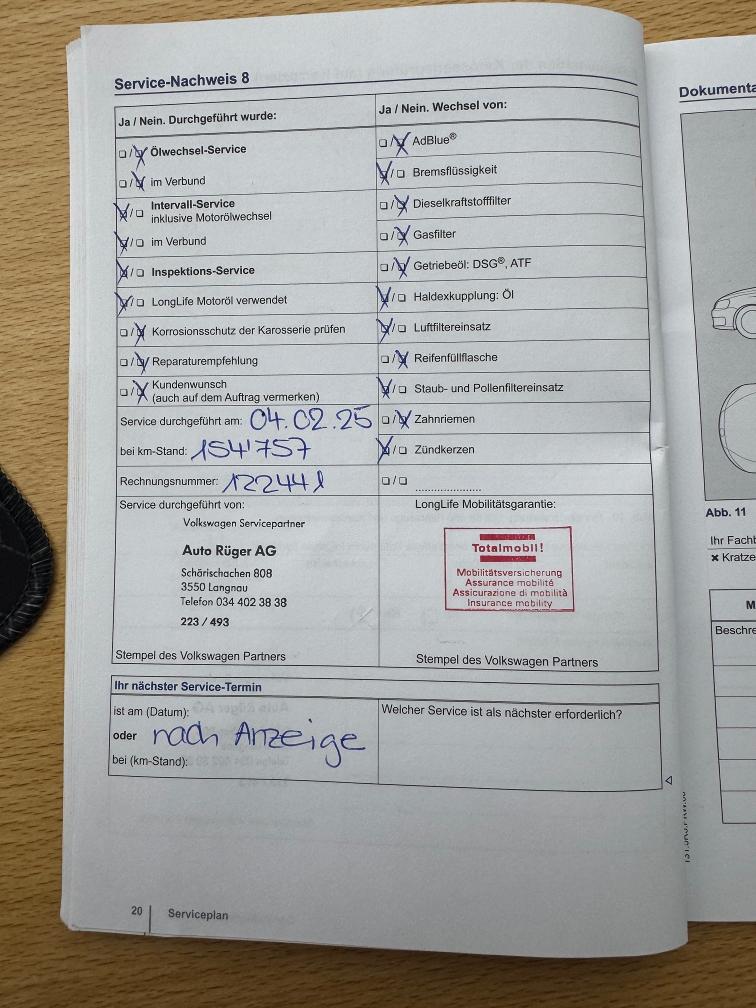 Service-Nachweis 8
Ja / Nein. Durchgeführt wurde:
☐/☒ Ölwechsel-Service
☐/☒ im Verbund
☒/☐ Intervall-Service
inklusive Motorölwechsel
☒/☐ im Verbund
☒/☐ Inspektions-Service
☒/☐ LongLife Motoröl verwendet
☐/☒ Korrosionsschutz der Karosserie prüfen
☐/☒ Reparaturempfehlung
☐/☒ Kundenwunsch
(auch auf dem Auftrag vermerken)
Service durchgeführt am: 04.02.25
bei km-Stand: 154'757
Rechnungsnummer: 122441
Service durchgeführt von:
Volkswagen Servicepartner
Auto Rüger AG
Schärischachen 808
3550 Langnau
Telefon 034 402 38 38
223 / 493
Stempel des Volkswagen Partners
Ja / Nein. Wechsel von:
☐/☒ AdBlue®
☒/☐ Bremsflüssigkeit
☐/☒ Dieselkraftstofffilter
☐/☒ Gasfilter
☐/☒ Getriebeöl: DSG®, ATF
☒/☐ Haldexkupplung: Öl
☒/☐ Luftfiltereinsatz
☐/☒ Reifenfüllflasche
☒/☐ Staub- und Pollenfiltereinsatz
☐/☒ Zahnriemen
☒/☐ Zündkerzen
☐/☐ ....................
LongLife Mobilitätsgarantie:
Totalmobil!
Mobilitätsversicherung
Assurance mobilité
Assicurazione di mobilità
Insurance mobility
Stempel des Volkswagen Partners
Ihr nächster Service-Termin
ist am (Datum):
oder nach Anzeige
bei (km-Stand):
Welcher Service ist als nächster erforderlich?
20 Serviceplan
Dokumenta
Abb. 11
Ihr Facht
× Kratze
M
Beschre